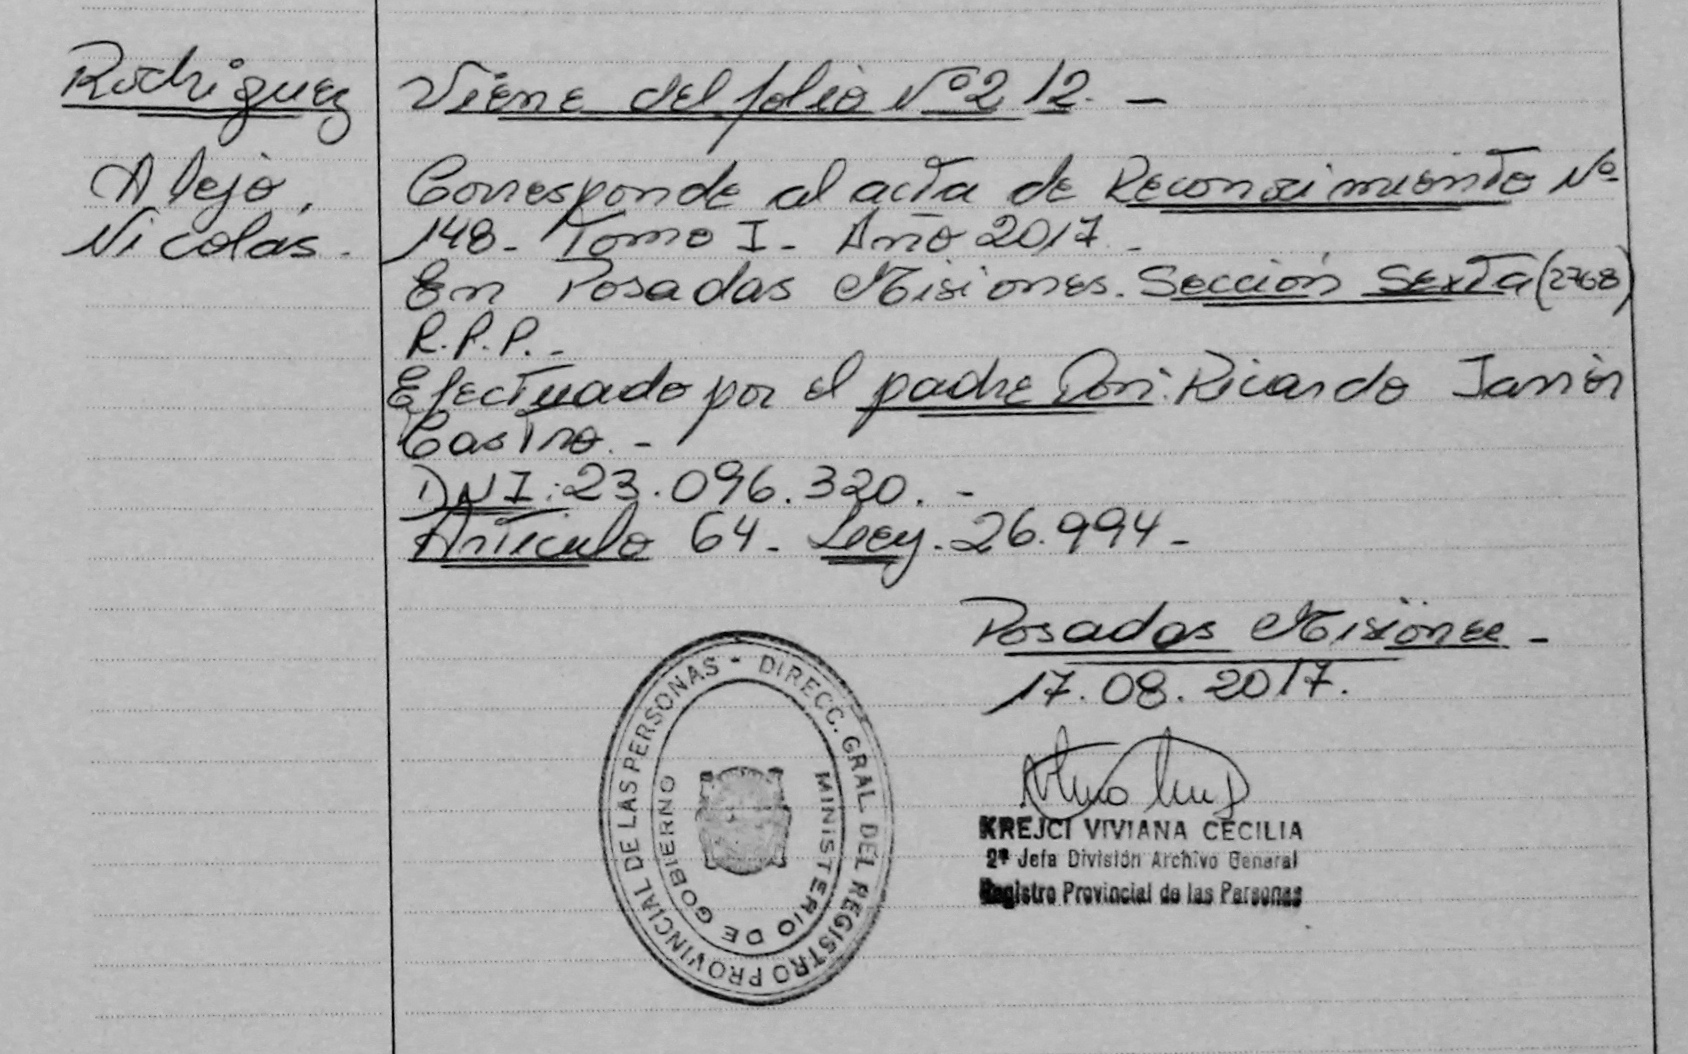 Rodriguez
Alejo,
Nicolas.
Viene del folio Nº 212. -
Corresponde al acta de Reconosimiento Nº
148- Tomo I- Año 2017-
En Posadas Misiones. Sección Sexta (2768)
R.P.P.-
Efectuado por el padre Don: Ricardo Javier
Castro. -
DNI: 23.096.320. -
Artículo 64- Ley. 26.994-
Posadas Misiones -
17.08.2017.
DIRECC. GRAL. DEL REGISTRO PROVINCIAL DE LAS PERSONAS -
MINISTERIO DE GOBIERNO
KREJCI VIVIANA CECILIA
2ª Jefa División Archivo General
Registro Provincial de las Personas